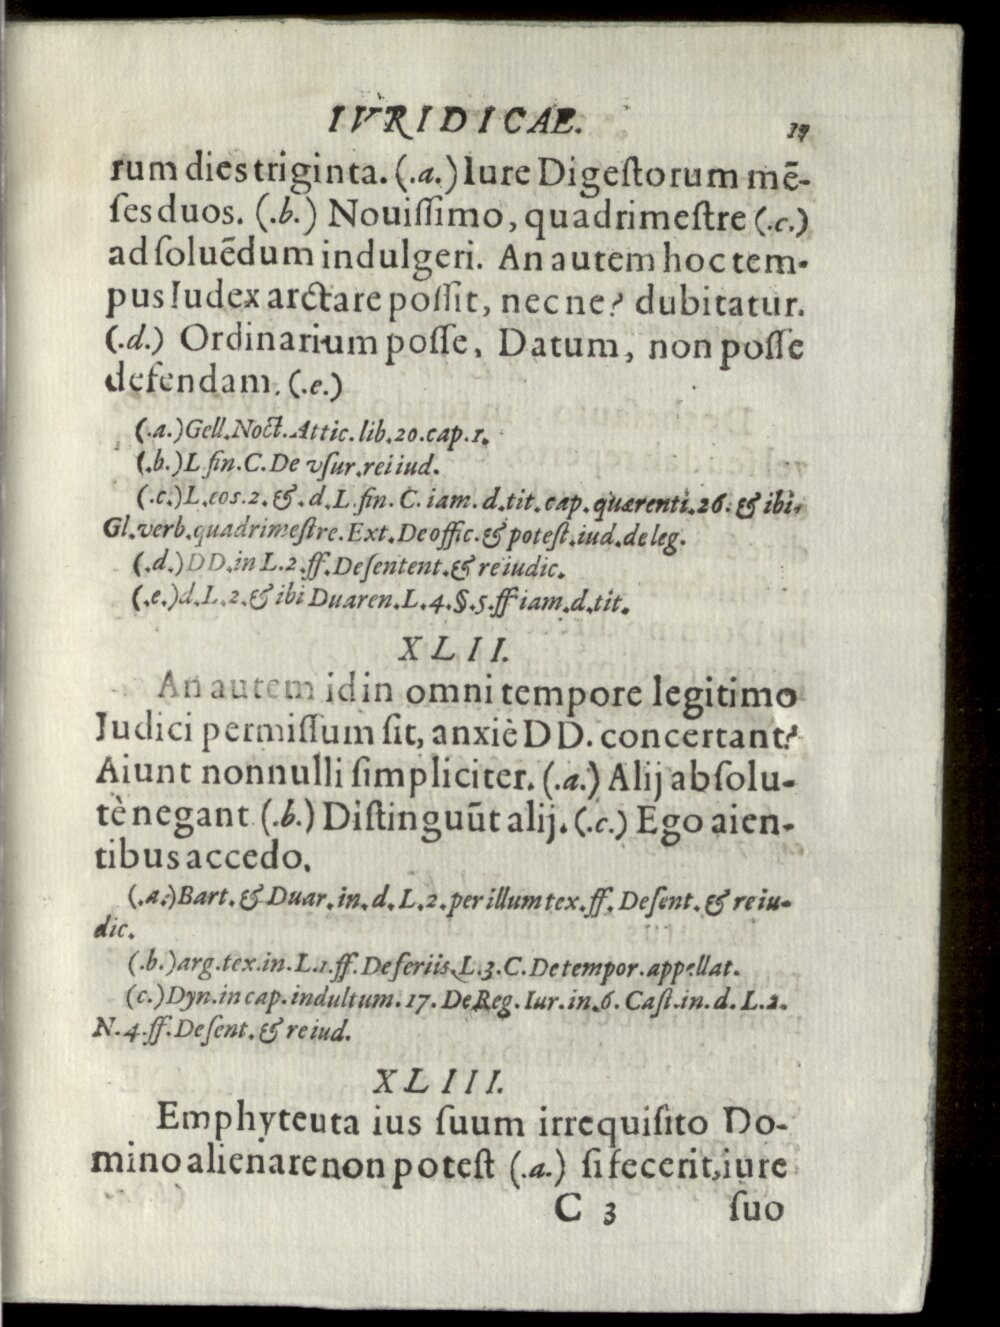 IVRIDICAE. 19
rum dies triginta. (.a.) Iure Digeſtorum mē-
ſes duos. (.b.) Nouiſſimo, quadrimeſtre (.c.)
ad ſoluēdum indulgeri. An autem hoc tem-
pus Iudex arctare poſſit, nec ne? dubitatur.
(.d.) Ordinarium poſſe, Datum, non poſſe
defendam. (.e.)
(.a.) Gell. Noct. Attic. lib. 20. cap. 1.
(.b.) L. fin. C. De vſur. rei iud.
(.c.) L. eos. 2. & d. L. fin. C. iam. d. tit. cap. quærenti. 26. & ibi.
Gl. verb. quadrimeſtre. Ext. De offic. & poteſt. iud. deleg.
(.d.) DD. in L. 2. ff. De ſentent. & re iudic.
(.e.) d. L. 2. & ibi Duaren. L. 4. §. 5. ff iam. d. tit.
XLII.
An autem id in omni tempore legitimo
Iudici permiſſum ſit, anxiè DD. concertant?
Aiunt nonnulli ſimpliciter. (.a.) Alij abſolu-
tè negant (.b.) Diſtinguūt alij. (.c.) Ego aien-
tibus accedo.
(.a.) Bart. & Duar. in. d. L. 2. per illum tex. ff. De ſent. & re iu-
dic.
(.b.) arg. tex. in. L. 1. ff. De feriis. L. 3. C. De tempor. appellat.
(c.) Dyn. in cap. indultum. 17. De Reg. Iur. in. 6. Caſt. in. d. L. 2.
N. 4. ff. De ſent. & re iud.
XLIII.
Emphyteuta ius ſuum irrequiſito Do-
mino alienare non poteſt (.a.) ſi fecerit, iure
C 3 ſuo